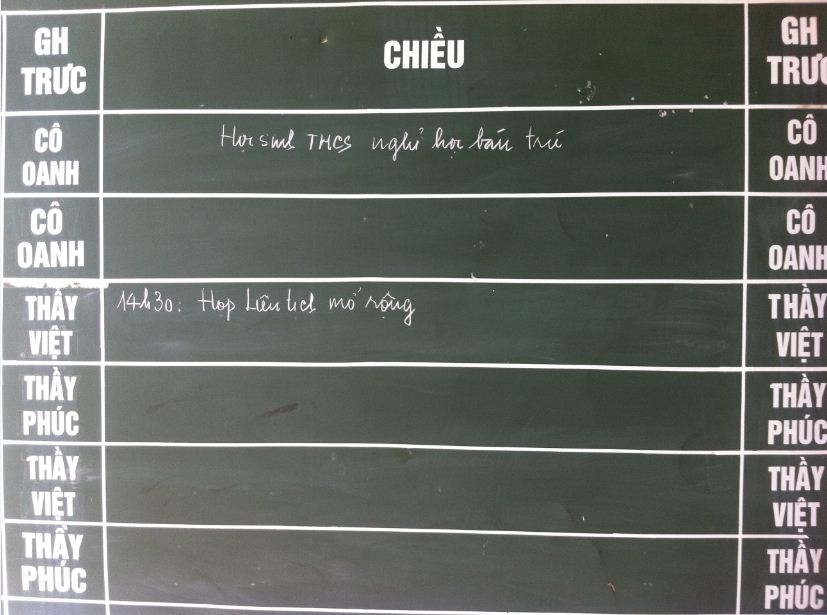 GH TRỰC CHIỀU GH TRỰC
CÔ OANH Học sinh THCS nghỉ học bán trú CÔ OANH
CÔ OANH CÔ OANH
THẦY VIỆT 14h30: Họp Liên tịch mở rộng THẦY VIỆT
THẦY PHÚC THẦY PHÚC
THẦY VIỆT THẦY VIỆT
THẦY PHÚC THẦY PHÚC